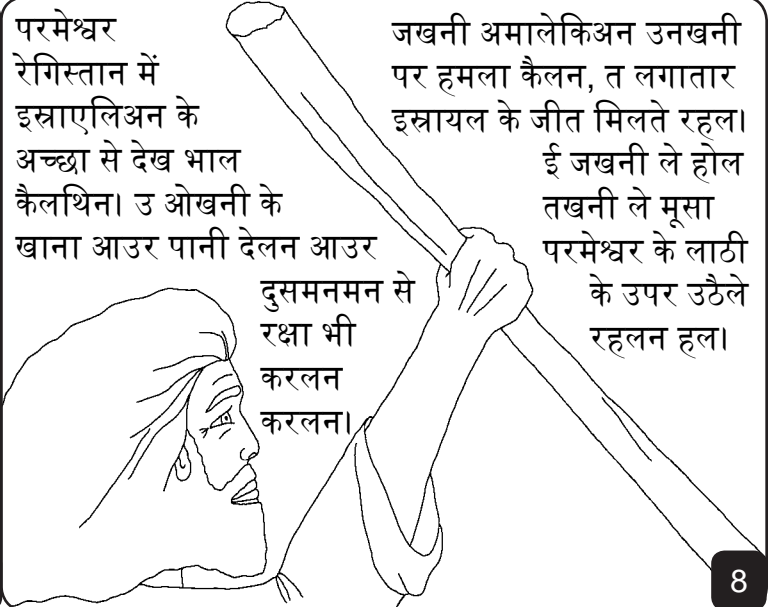 परमेश्वर
रेगिस्तान में
इस्राएलिअन के
अच्छा से देख भाल
कैलथिन। उ ओखनी के
खाना आउर पानी देलन आउर
दुसमनमन से
रक्षा भी
करलन
करलन।
जखनी अमालेकिअन उनखनी
पर हमला कैलन, त लगातार
इस्रायल के जीत मिलते रहल।
ई जखनी ले होल
तखनी ले मूसा
परमेश्वर के लाठी
के उपर उठैले
रहलन हल।
8